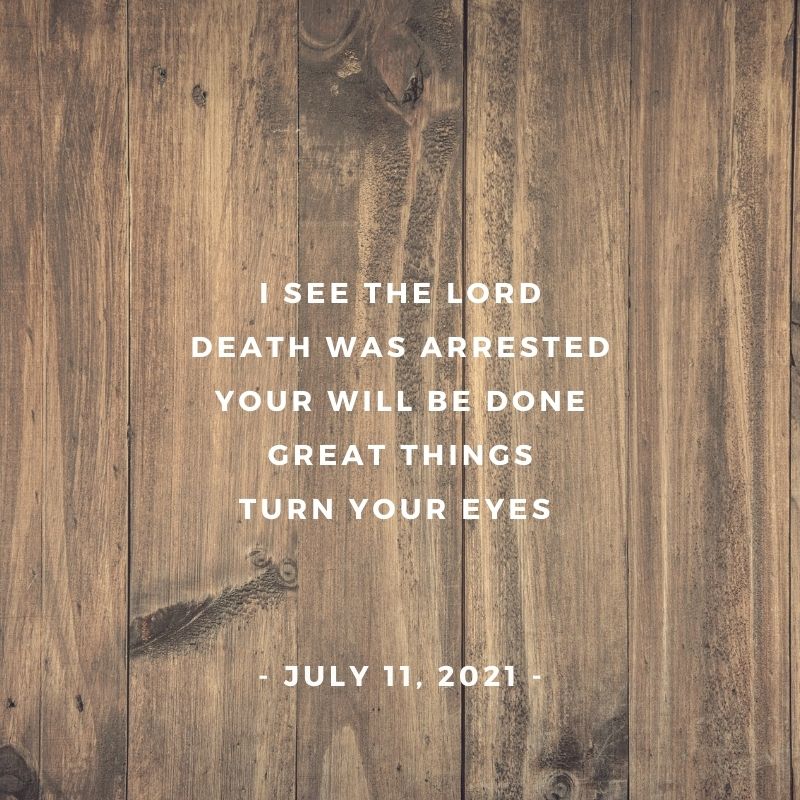 I SEE THE LORD
DEATH WAS ARRESTED
YOUR WILL BE DONE
GREAT THINGS
TURN YOUR EYES
- JULY 11, 2021 -